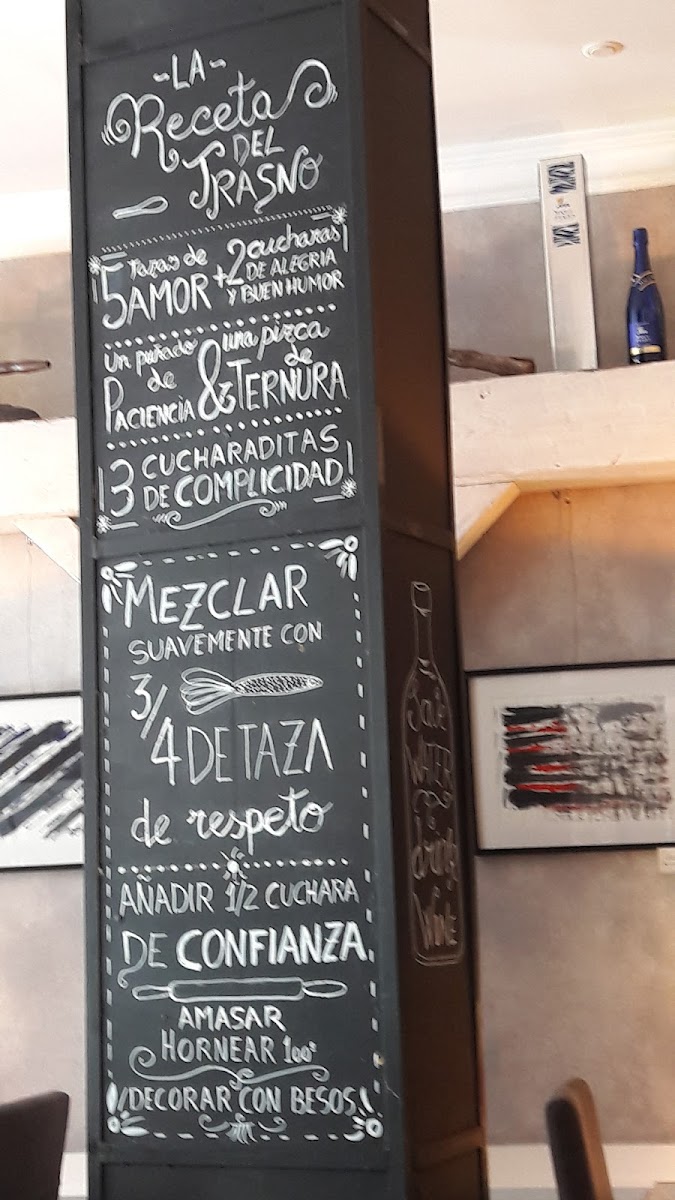 -LA-
Receta
DEL
TRASNO
5 tazas de
AMOR
+2 cucharas
DE ALEGRIA
Y BUEN HUMOR
un puñado
de
PACIENCIA
& una pizca
de
TERNURA
3 CUCHARADITAS
DE COMPLICIDAD
MEZCLAR
SUAVEMENTE CON
3/4 DE TAZA
de respeto
AÑADIR 1/2 CUCHARA
DE CONFIANZA
AMASAR
HORNEAR 100°
¡DECORAR CON BESOS!
Save
WATER
&
drink
WINE